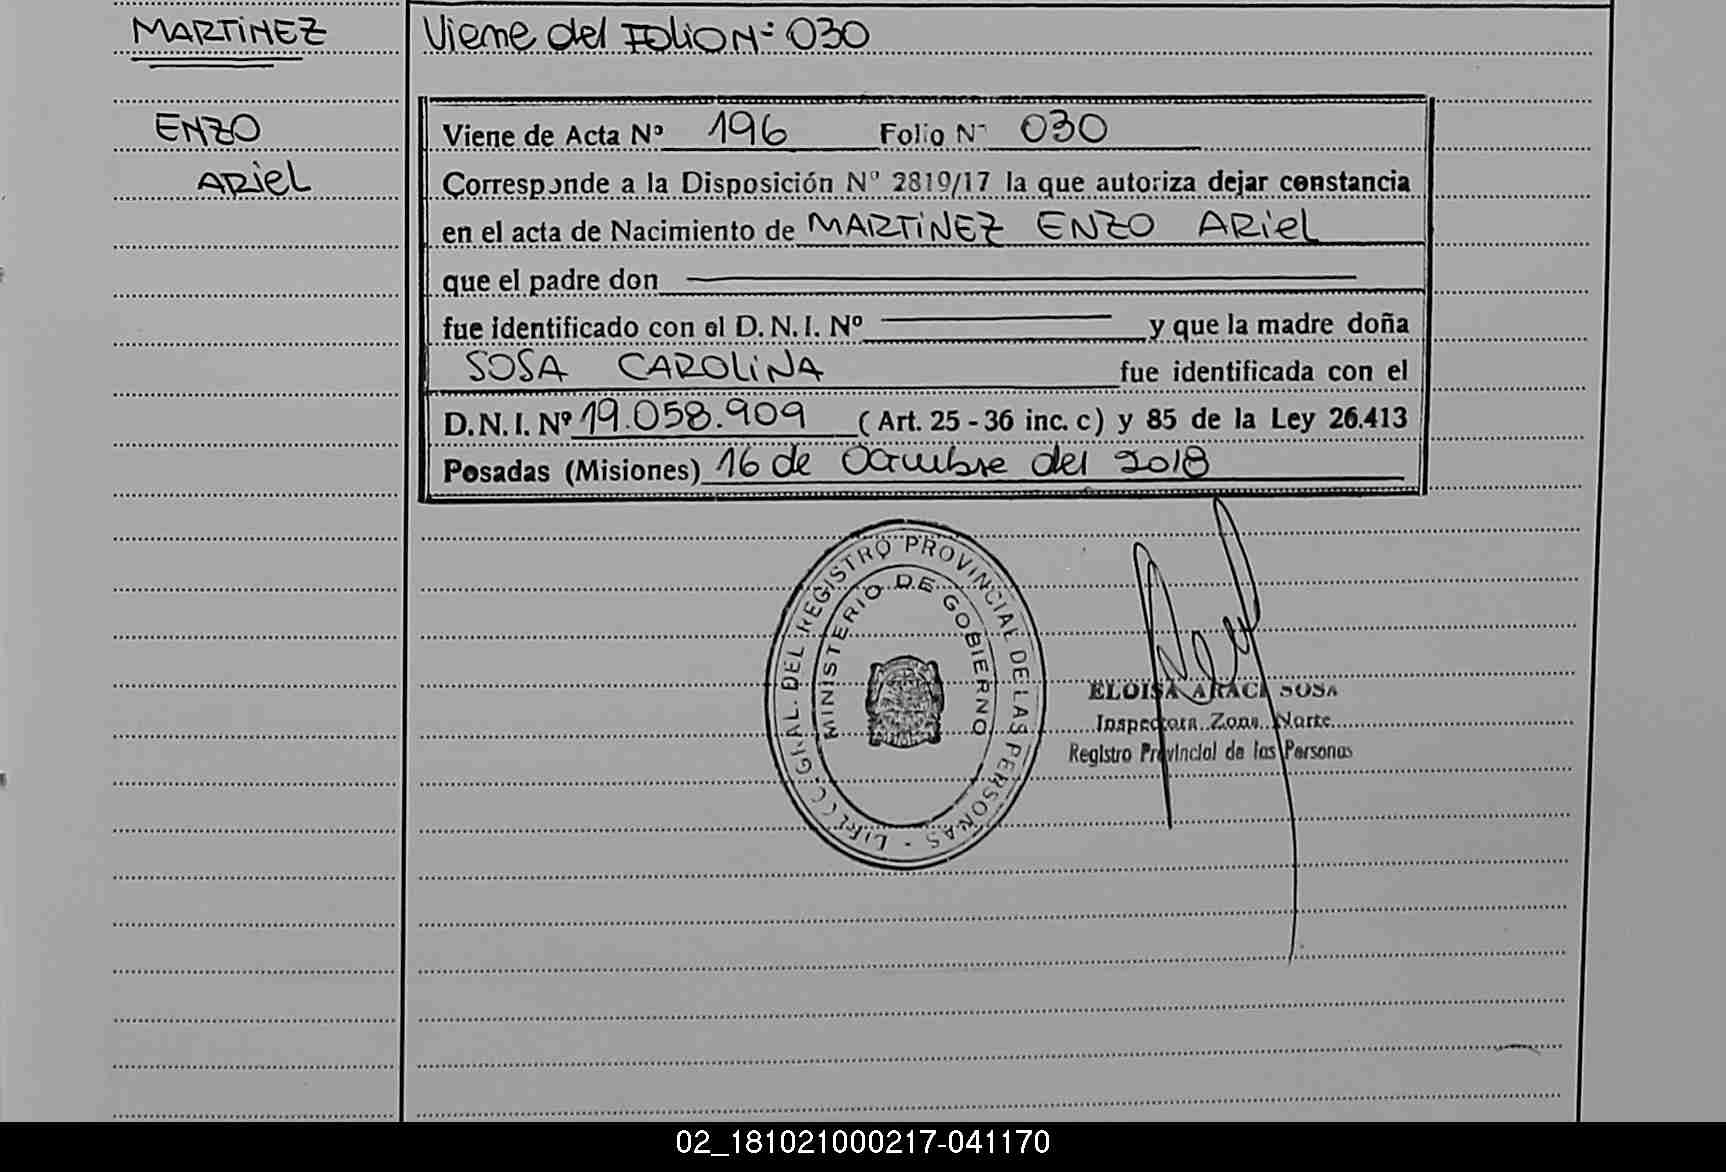 MARTINEZ
ENZO
ARIEL
Viene del FOLIO N: 030
Viene de Acta Nº 196 Folio Nº 030
Corresponde a la Disposición Nº 2819/17 la que autoriza dejar constancia
en el acta de Nacimiento de MARTINEZ ENZO ARIEL
que el padre don
fue identificado con el D. N. I. Nº y que la madre doña
SOSA CAROLINA fue identificada con el
D. N. I. Nº 19.058.909 ( Art. 25 - 36 inc. c ) y 85 de la Ley 26.413
Posadas (Misiones) 16 de Octubre del 2018
GRAL. DEL REGISTRO PROVINCIAL DE LAS PERSONAS
MINISTERIO DE GOBIERNO
ELOISA ARACI SOSA
Inspectora Zona Norte
Registro Provincial de las Personas
02_181021000217-041170